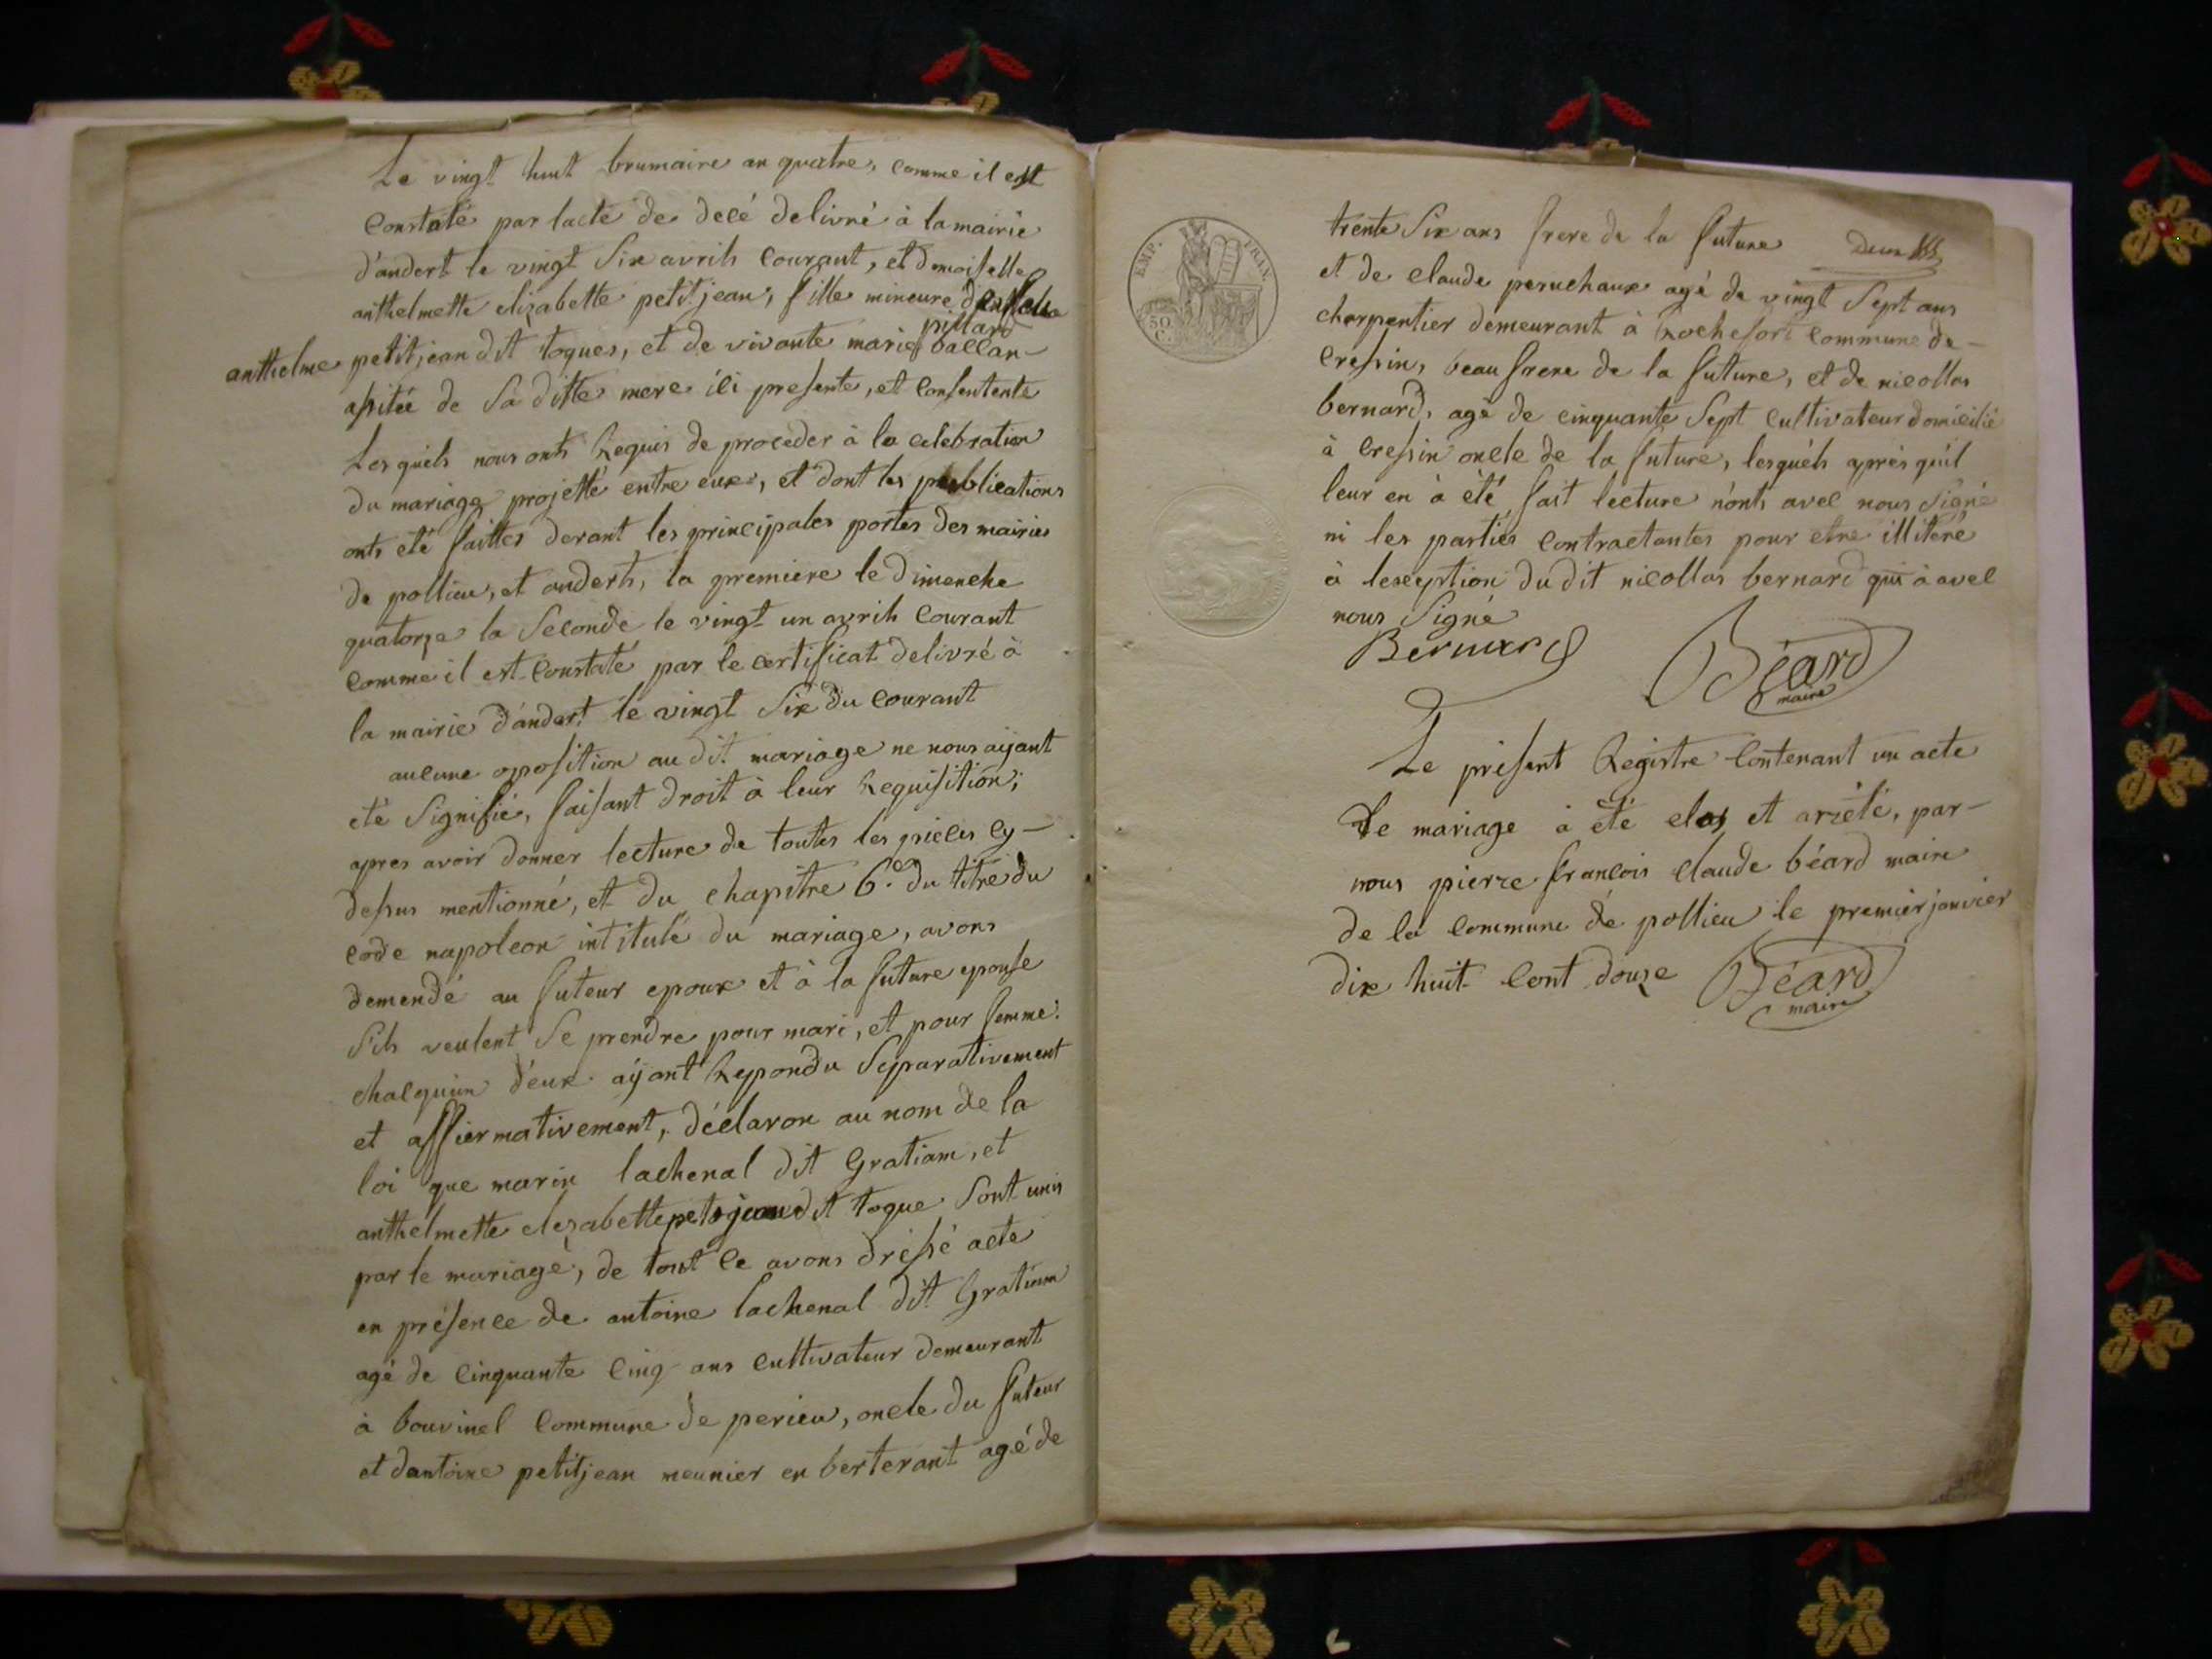 Le vingt huit brumaire an quatre, comme il est
constaté par lacte de decé delivré à la mairie
d'andert le vingt six avrils courant, et demoiselle
anthelmette elizabette petitjean, fille mineure
pillard
anthelme petitjean dit toques, et de vivante marie ballan-
assitée de sa ditte mere ici presente, et consentente
Les quels nous onts requis de proceder à la celebration
du mariage projetté entre eux, et dont les publications
onts eté faittes devant les principales portes des mairies
de pollieu, et anderts, la premiere le dimenche
quatorze la seconde le vingt un avrils courant
comme il est constaté par le certificat delivré à
la mairie d'andert le vingt six du courant
aucune oposition au dit mariage ne nous ayant
eté signifié, faisant droit à leur requisition;
apres avoir donner lecture de toutes les pieces cy-
dessus mentionné, et du chapitre 6.e du titre du
code napoleon intitulé du mariage, avons
demendé au futeur epoux et à la future epouse
s'ils veulent se prendre pour mari, et pour femme.
chacquun d'eux ayant repondu separativement
et affiermativement, déclaron au nom de la
loi que marin lachenal dit Gratiam, et
anthelmette elezabette petitjean dit toque sont unis
par le mariage, de tout ce avons dréssé acte
en présence de antoine lachenal dit Gratiam
agé de cinquante cinq ans cultivateur demeurant
à bouvinel commune de perieu, oncle du futeur
et dantoine petitjean meunier en berterant agé de
EMP. FRAN.
50 C.
trente six ans frere de la future
Deux
et de claude peruchaux agé de vingt sept ans
charpentier demeurant à Rochefort commune de-
cressin, beau frere de la future, et de nicollas
bernard, agé de cinquante sept cultivateur domicilié
à cressin oncle de la future, lesquéls aprés qu'il
leur en à été fait lecture n'onts avec nous signé
ni les partiés contractantes pour etre illitéré
à lexeption du dit nicollas bernard qui à avec
nous signé
Bernard
Béard
maire
Le présent Registre contenant un acte
de mariage à été clos et arrété, par-
nous pierre francois claude béard maire
de la commune de pollieu le premier janvier
dix huit cent douze
Béard
maire